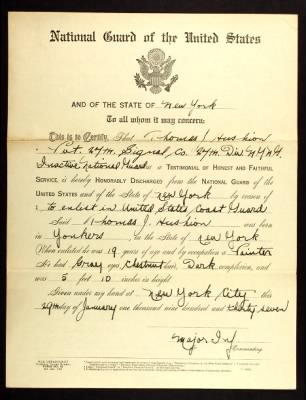 National Guard of the United States
AND OF THE STATE OF New York
To all whom it may concern:
This is to Certify, That Thomas J Hushion
Pvt. 27th. Signal Co. 27th Div. N.Y.N.G.
Inactive National Guard as a TESTIMONIAL OF HONEST AND FAITHFUL
SERVICE, is hereby HONORABLY DISCHARGED from the NATIONAL GUARD OF THE
UNITED STATES and of the State of New York by reason of
to enlist in United States Coast Guard
Said Thomas J. Hushion was born
in Yonkers in the State of New York
When enlisted he was 19 years of age and by occupation a Painter
He had Gray eyes Chestnut hair, Dark complexion, and
was 5 feet 10 inches in height
Given under my hand at New York City this
29th day of January one thousand nine hundred and thirty seven
Major Inf.
Commanding.